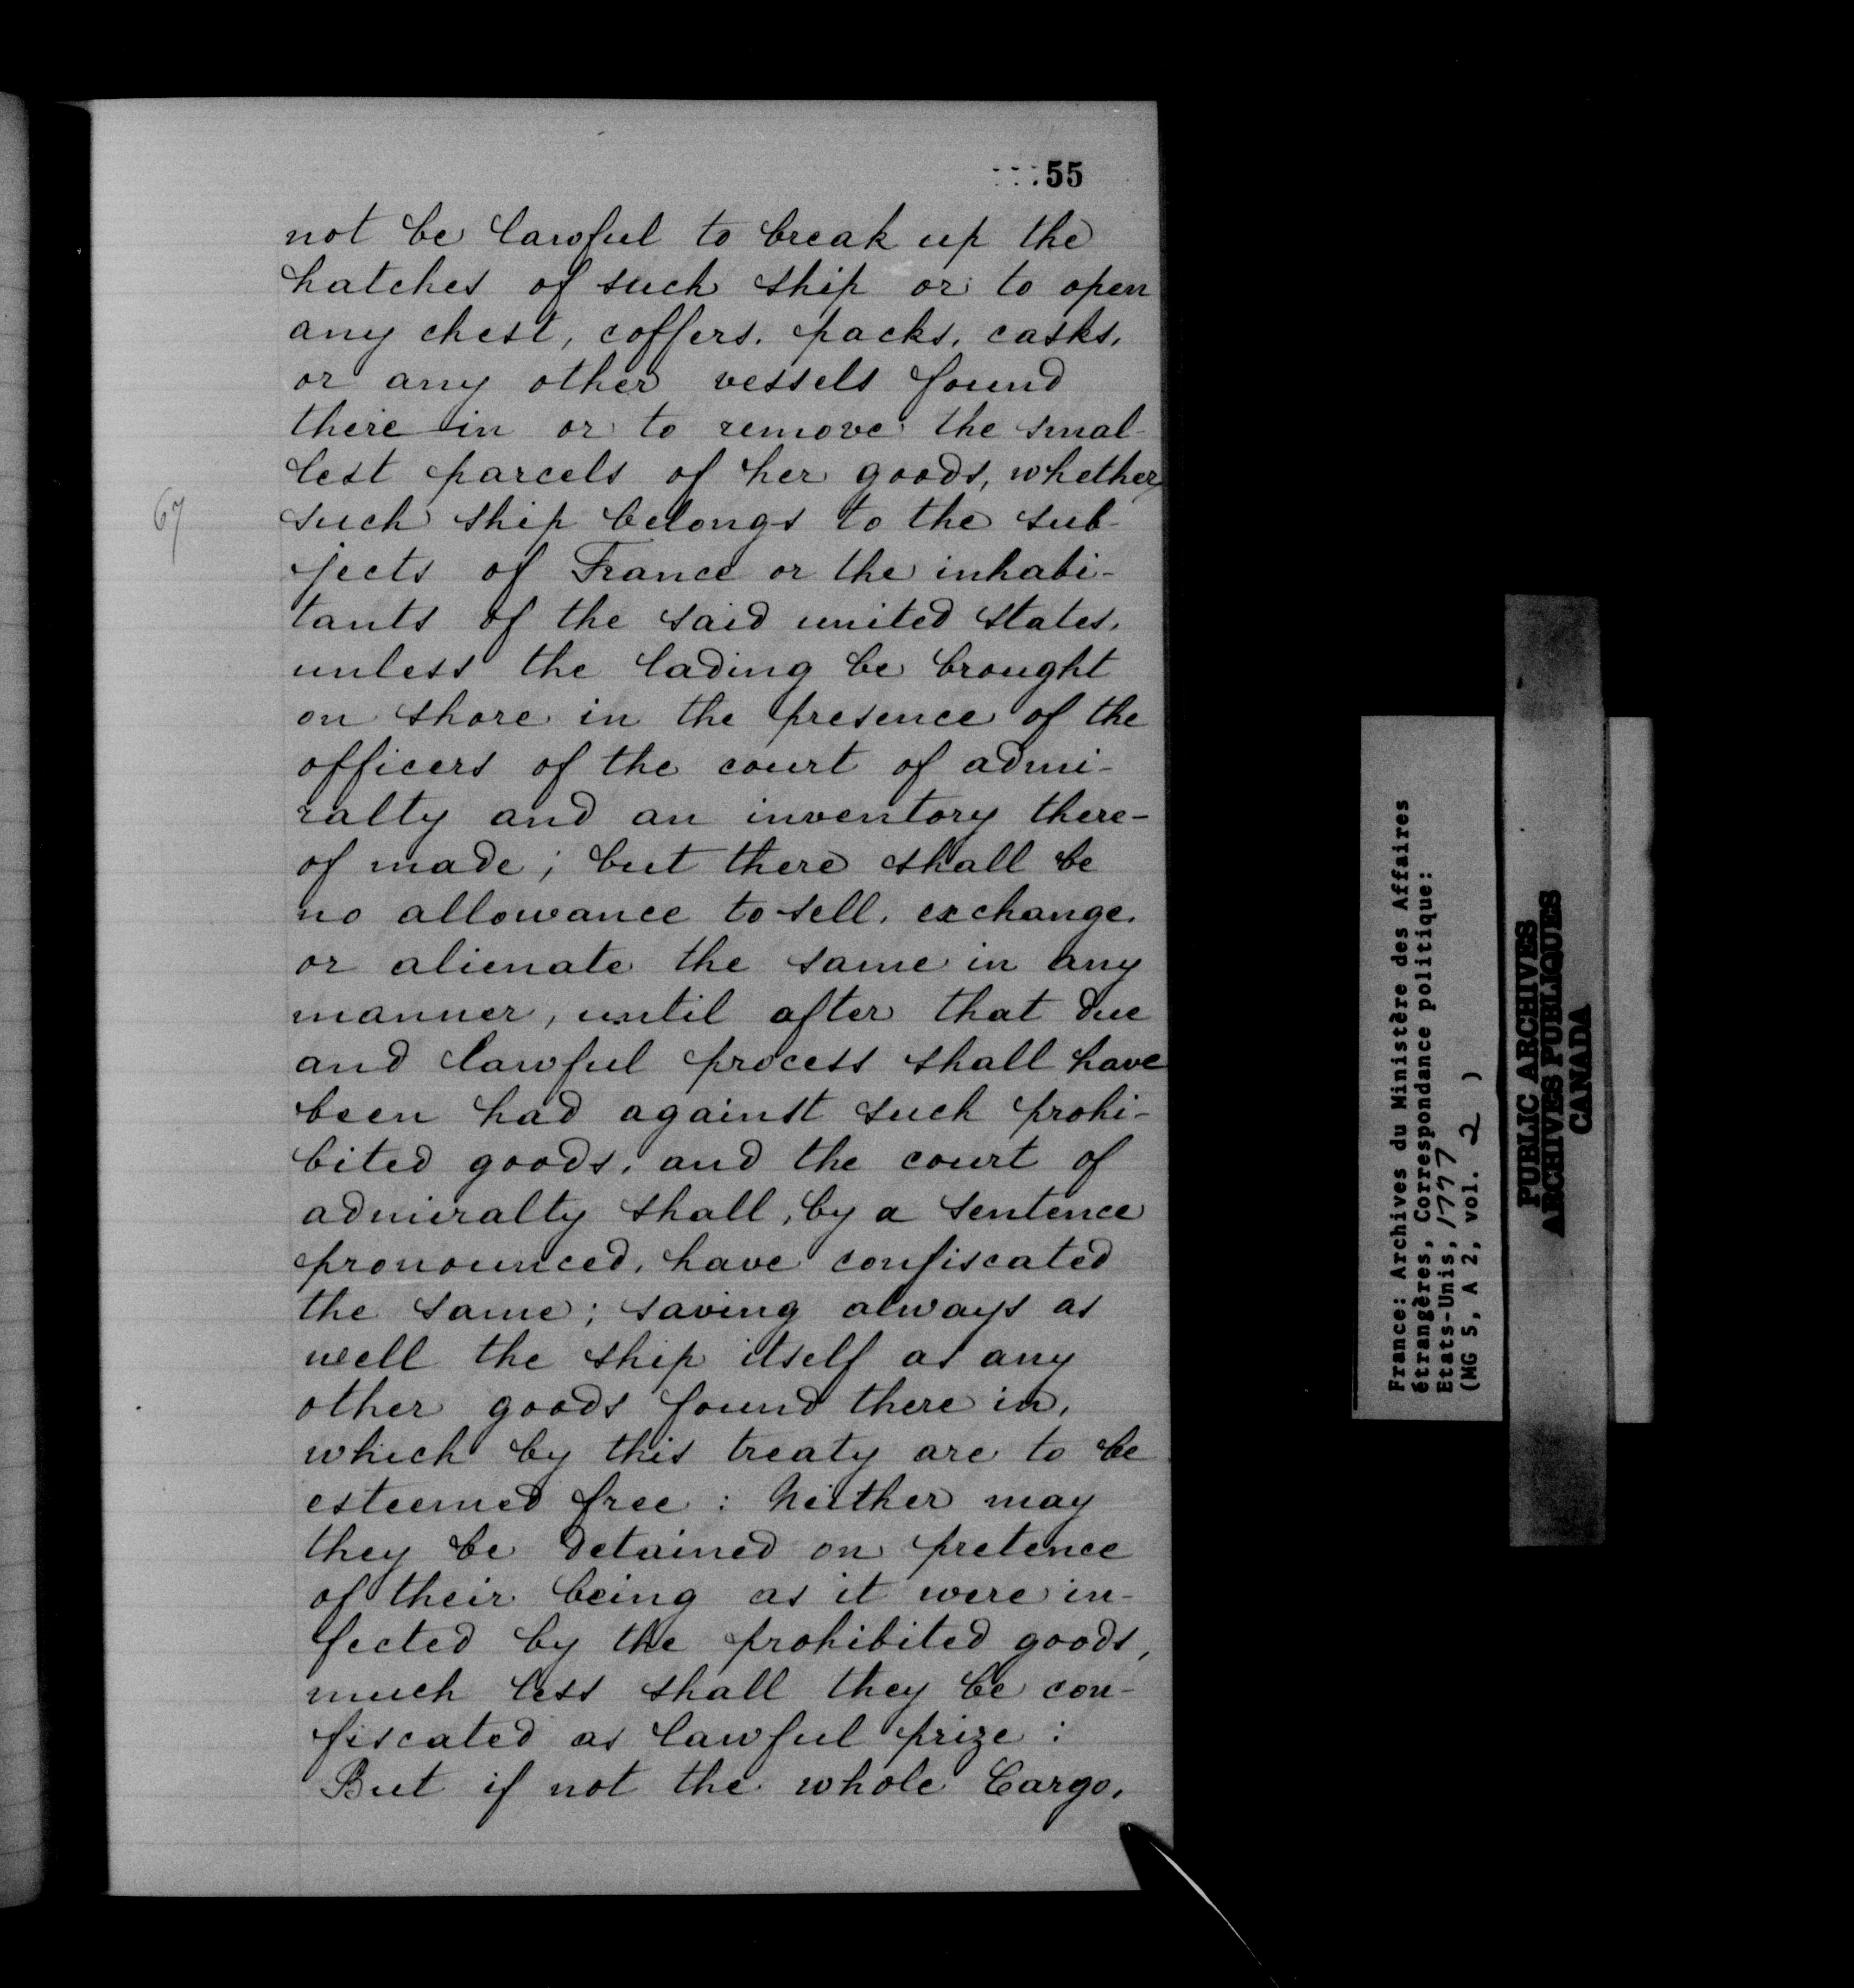 55
not be lawful to break up the
hatches of such ship or to open
any chest, coffers, packs, casks,
or any other vessels found
there in or to remove the smal-
lest parcels of her goods, whether
67
such ship belongs to the sub-
jects of France or the inhabi-
tants of the said united states,
unless the lading be brought
on shore in the presence of the
officers of the court of admi-
ralty and an inventory there-
of made; but there shall be
no allowance to sell, exchange,
or alienate the same in any
manner, until after that due
and lawful process shall have
been had against such prohi-
bited goods, and the court of
admiralty shall, by a sentence
pronounced, have confiscated
the same; saving always as
well the ship itself as any
other goods found there in,
which by this treaty are to be
esteemed free: Neither may
they be detained on pretence
of their being as it were in-
fected by the prohibited goods,
much less shall they be con-
fiscated as lawful prize:
But if not the whole Cargo,
France: Archives du Ministère des Affaires
étrangères, Correspondance politique:
Etats-Unis, 1777
(MG 5, A 2, vol. 2 )
PUBLIC ARCHIVES
ARCHIVES PUBLIQUES
CANADA